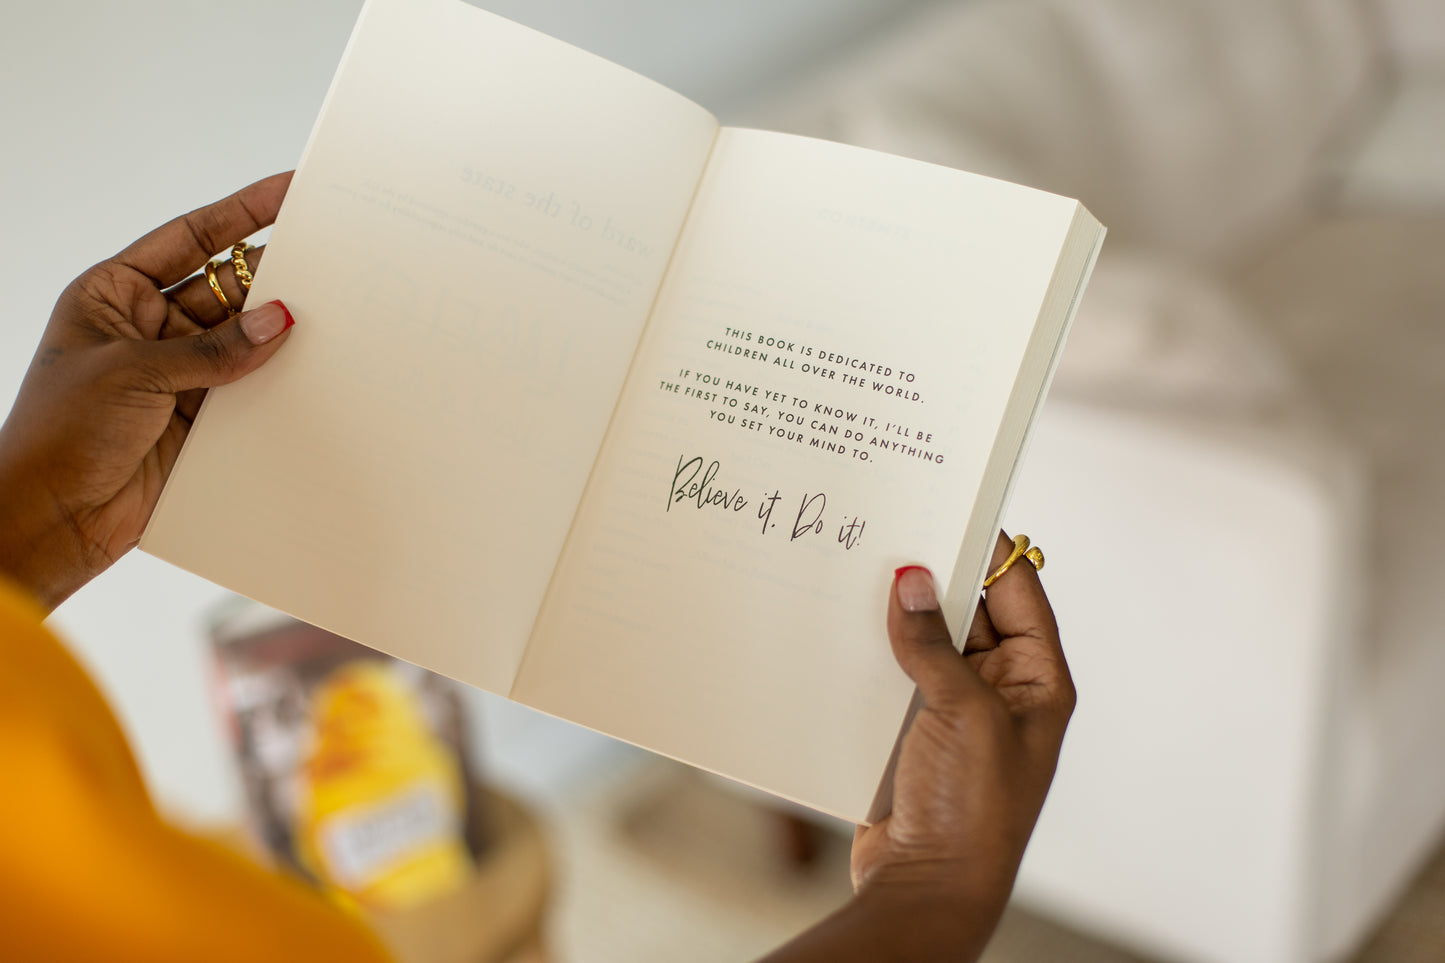 ward of the state
THIS BOOK IS DEDICATED TO
CHILDREN ALL OVER THE WORLD.
IF YOU HAVE YET TO KNOW IT, I'LL BE
THE FIRST TO SAY, YOU CAN DO ANYTHING
YOU SET YOUR MIND TO.
Believe it. Do it!